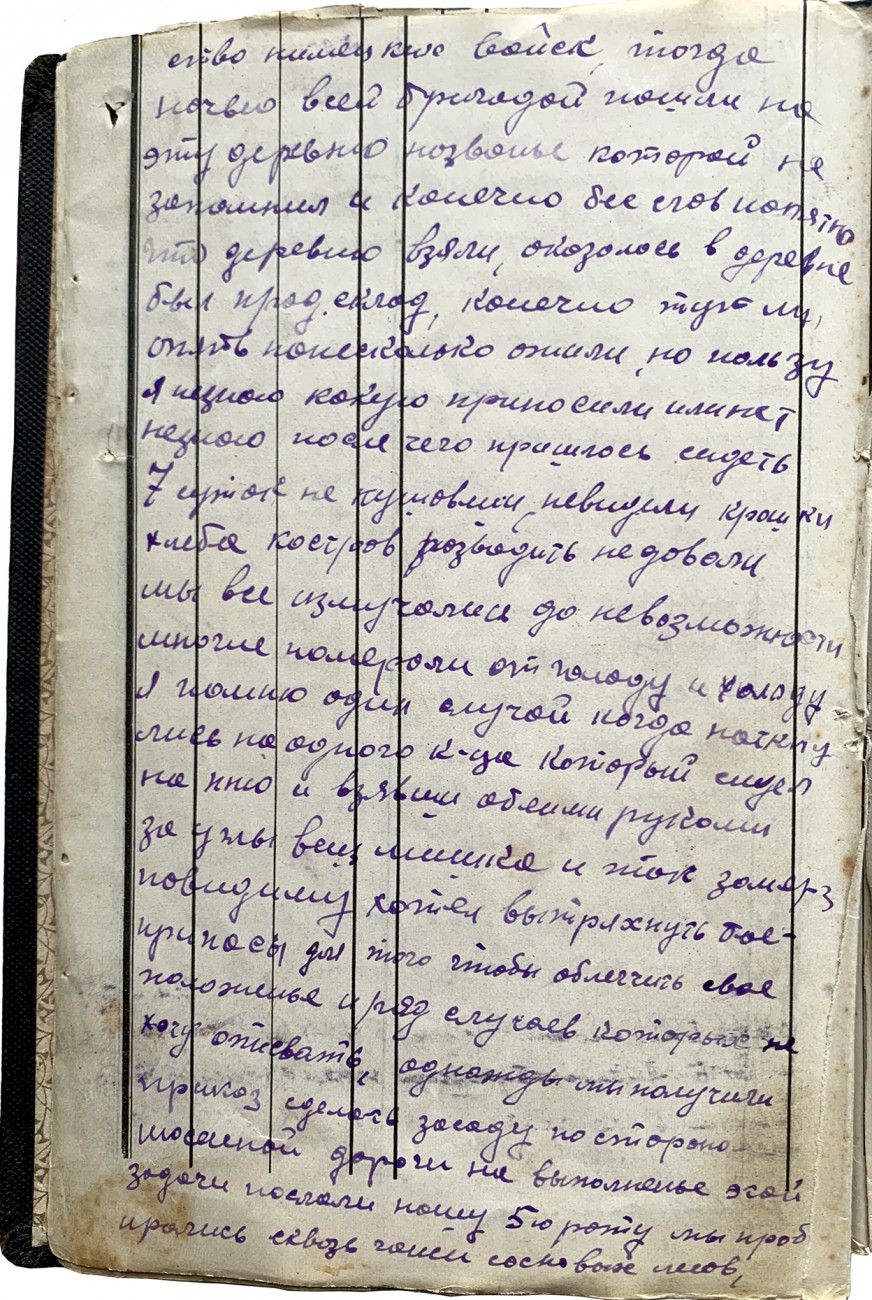 ство немецких войск, тогда
ночью всей бригадой пошли на
эту деревню названье которой не
запомнил и конечно бес слов понятно
что деревню взяли, оказалось в деревне
был прод.склад, конечно тут мы,
опять понесколько ожили, но пользу
я незнаю какую приносили илинет
незнаю после чего пришлось сидеть
7 суток не кушовши, невидели крошки
хлеба костров розводить недовали
мы все измучались до невозможности
многие померали от голоду и холоду
я помню один случай когда наткну
лись на одного к-ца который сидел
на пню и взявши обеими руками
за углы вещ мешка и так замерз
повидиму хотел вытряхнуть бое-
припасы для того чтобы облегчить свое
положенье и ряд случаев которых не
хочу описвать, однажды мы получили
приказ сделать засаду по стороно
шосейной дороги на выполненье этой
задачи послали нашу 5ю роту мы проб
ирались сквозь чащи сосновых лесов,